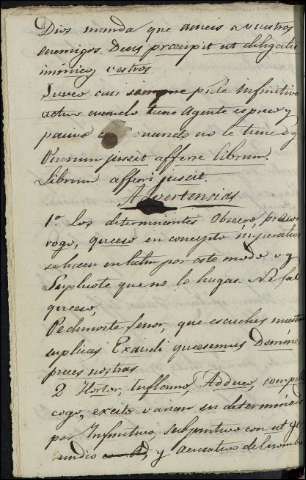 Dios manda que ameis a vuestros
enemigos. Deus præcipit ut diligatis
inimicos vestros
casi siempre pide Infinitivo
activo cuando tiene agente expreso y
pasivo cuando no le tiene
jussit afferre librum
Librum afferri jussit.
Advertencias
1ª los determinantes Obsecro, precor
rogo, quæso en concepto
en latin por este modo v.g.
Suplicote que no lo hagas Ne fac
quæso,
Pedimoste Senor, que escuches nuestras
suplicas Exaudi quæsumus Domine
preces nostras
2 Hortor, Adduco,
cogo, excito varian su determinado
por Infinitivo, subjuntivo con ut
y acusativo